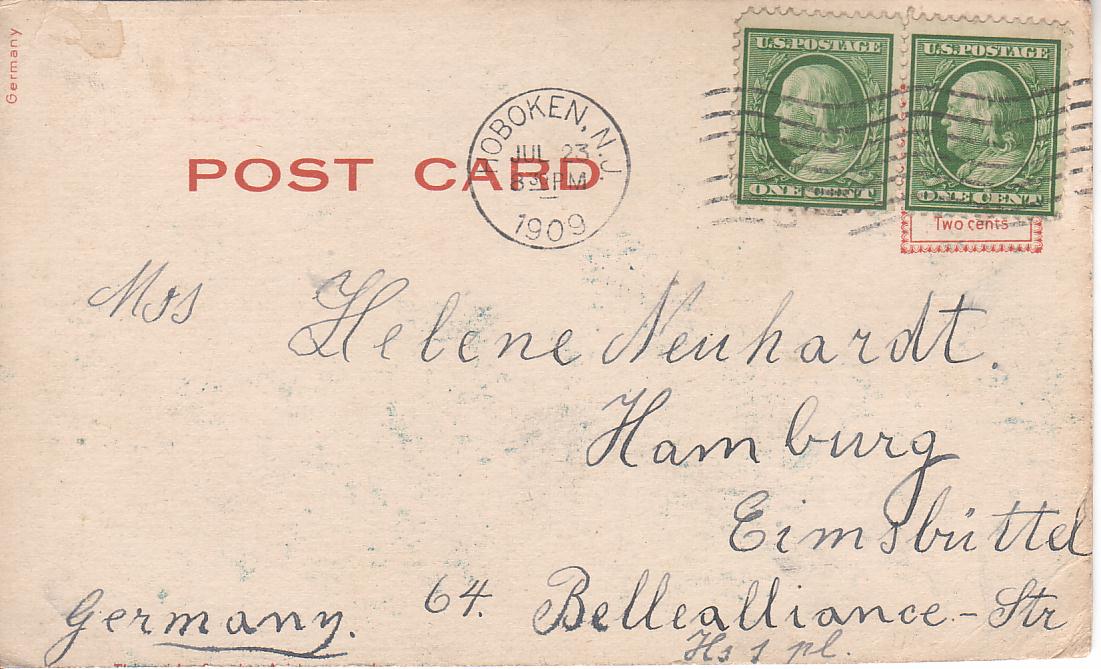 Germany
U.S. POSTAGE U.S. POSTAGE
ONE CENT ONE CENT
Two cents
HOBOKEN, N.J.
JUL 23
8 PM
1909
POST CARD
Mss Helene Neuhardt.
Hamburg
Eimsbüttel
Germany. 64. Bellealliance-Str
Hs 1 pl.